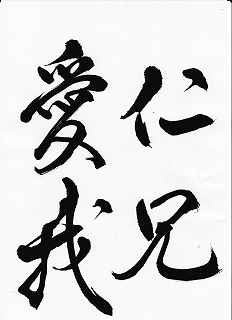 仁兄
愛我